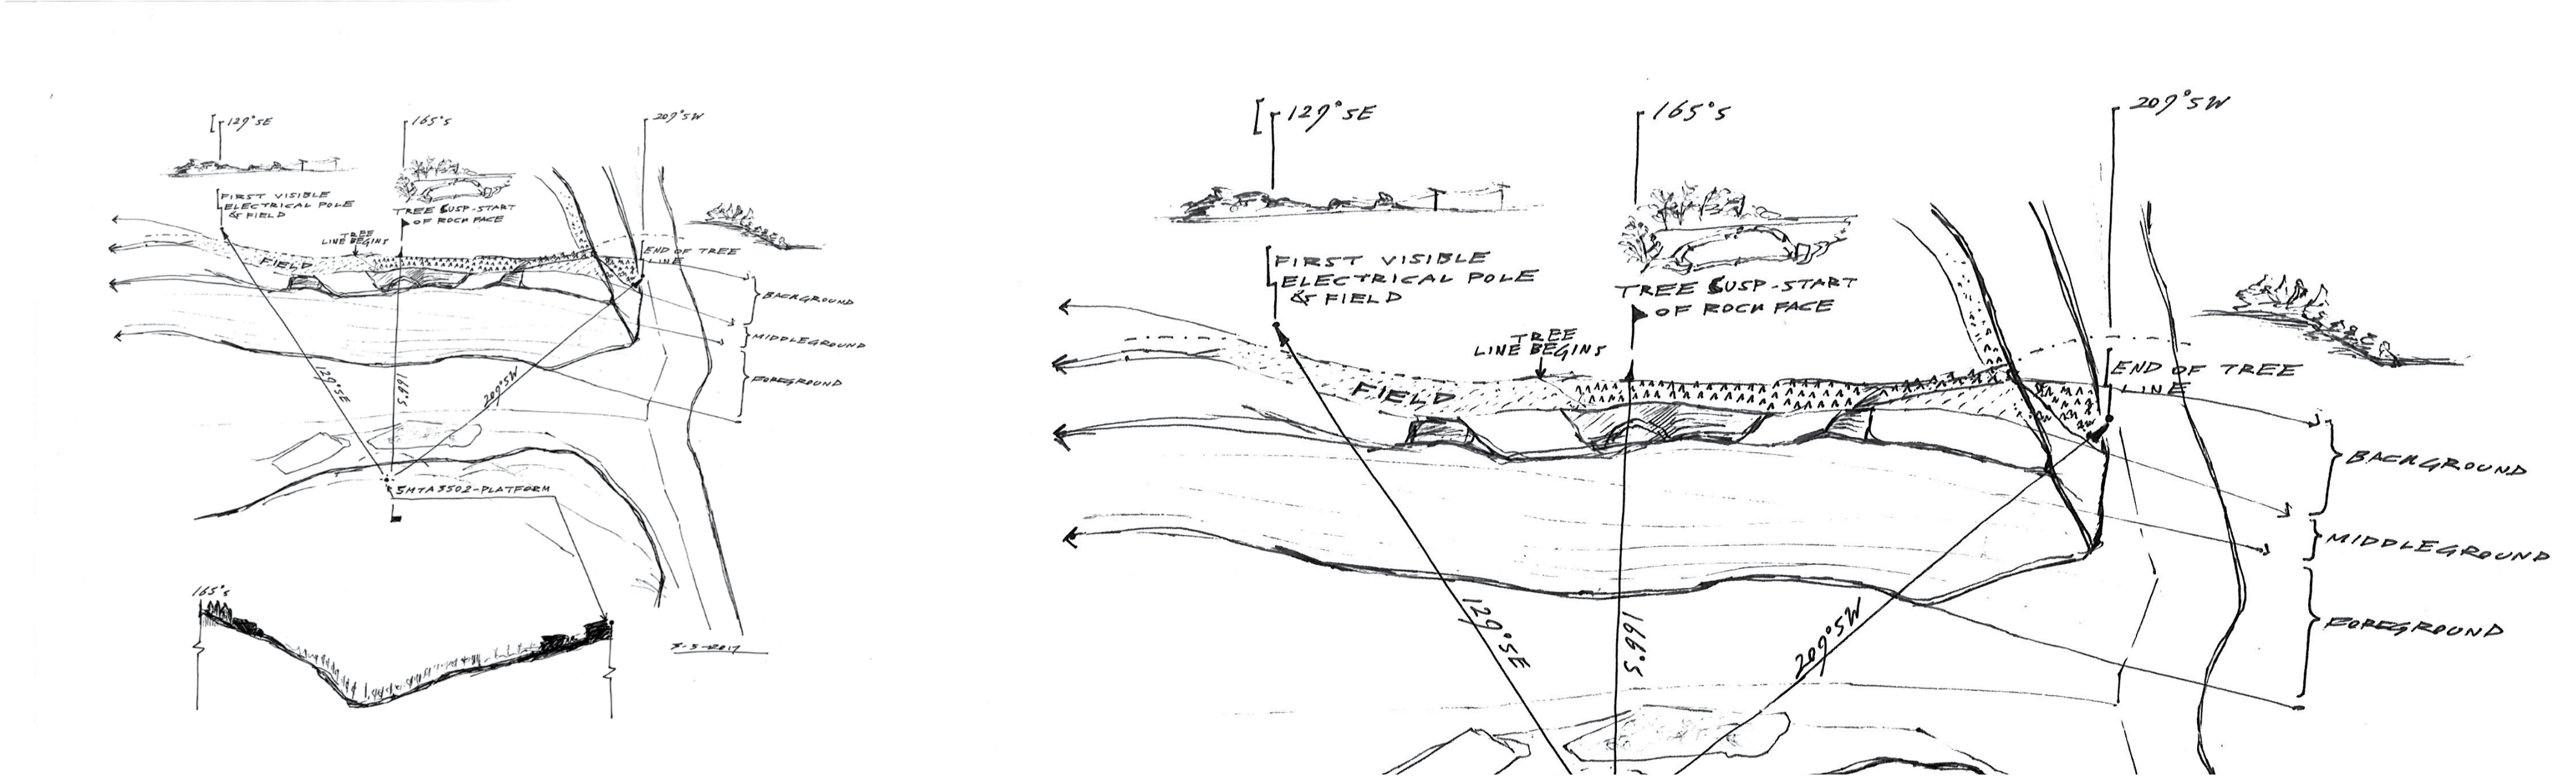 129°SE
165°S
209°SW
FIRST VISIBLE
ELECTRICAL POLE
& FIELD
TREE SUSP-START
OF ROCK FACE
TREE
LINE BEGINS
FIELD
END OF TREE
LINE
BACKGROUND
MIDDLEGROUND
FOREGROUND
129°SE
166°S
209°SW
5MTA3502-PLATFORM
165°S
129°SE
165°S
209°SW
FIRST VISIBLE
ELECTRICAL POLE
& FIELD
TREE SUSP-START
OF ROCK FACE
TREE
LINE BEGINS
FIELD
END OF TREE
LINE
BACKGROUND
MIDDLEGROUND
FOREGROUND
129°SE
166°S
209°SW